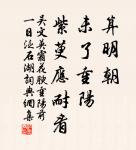 算明朝
未了重陽
紫萸應耐看
吳文英霜花腴重陽前
一日泛石湖詞典網集